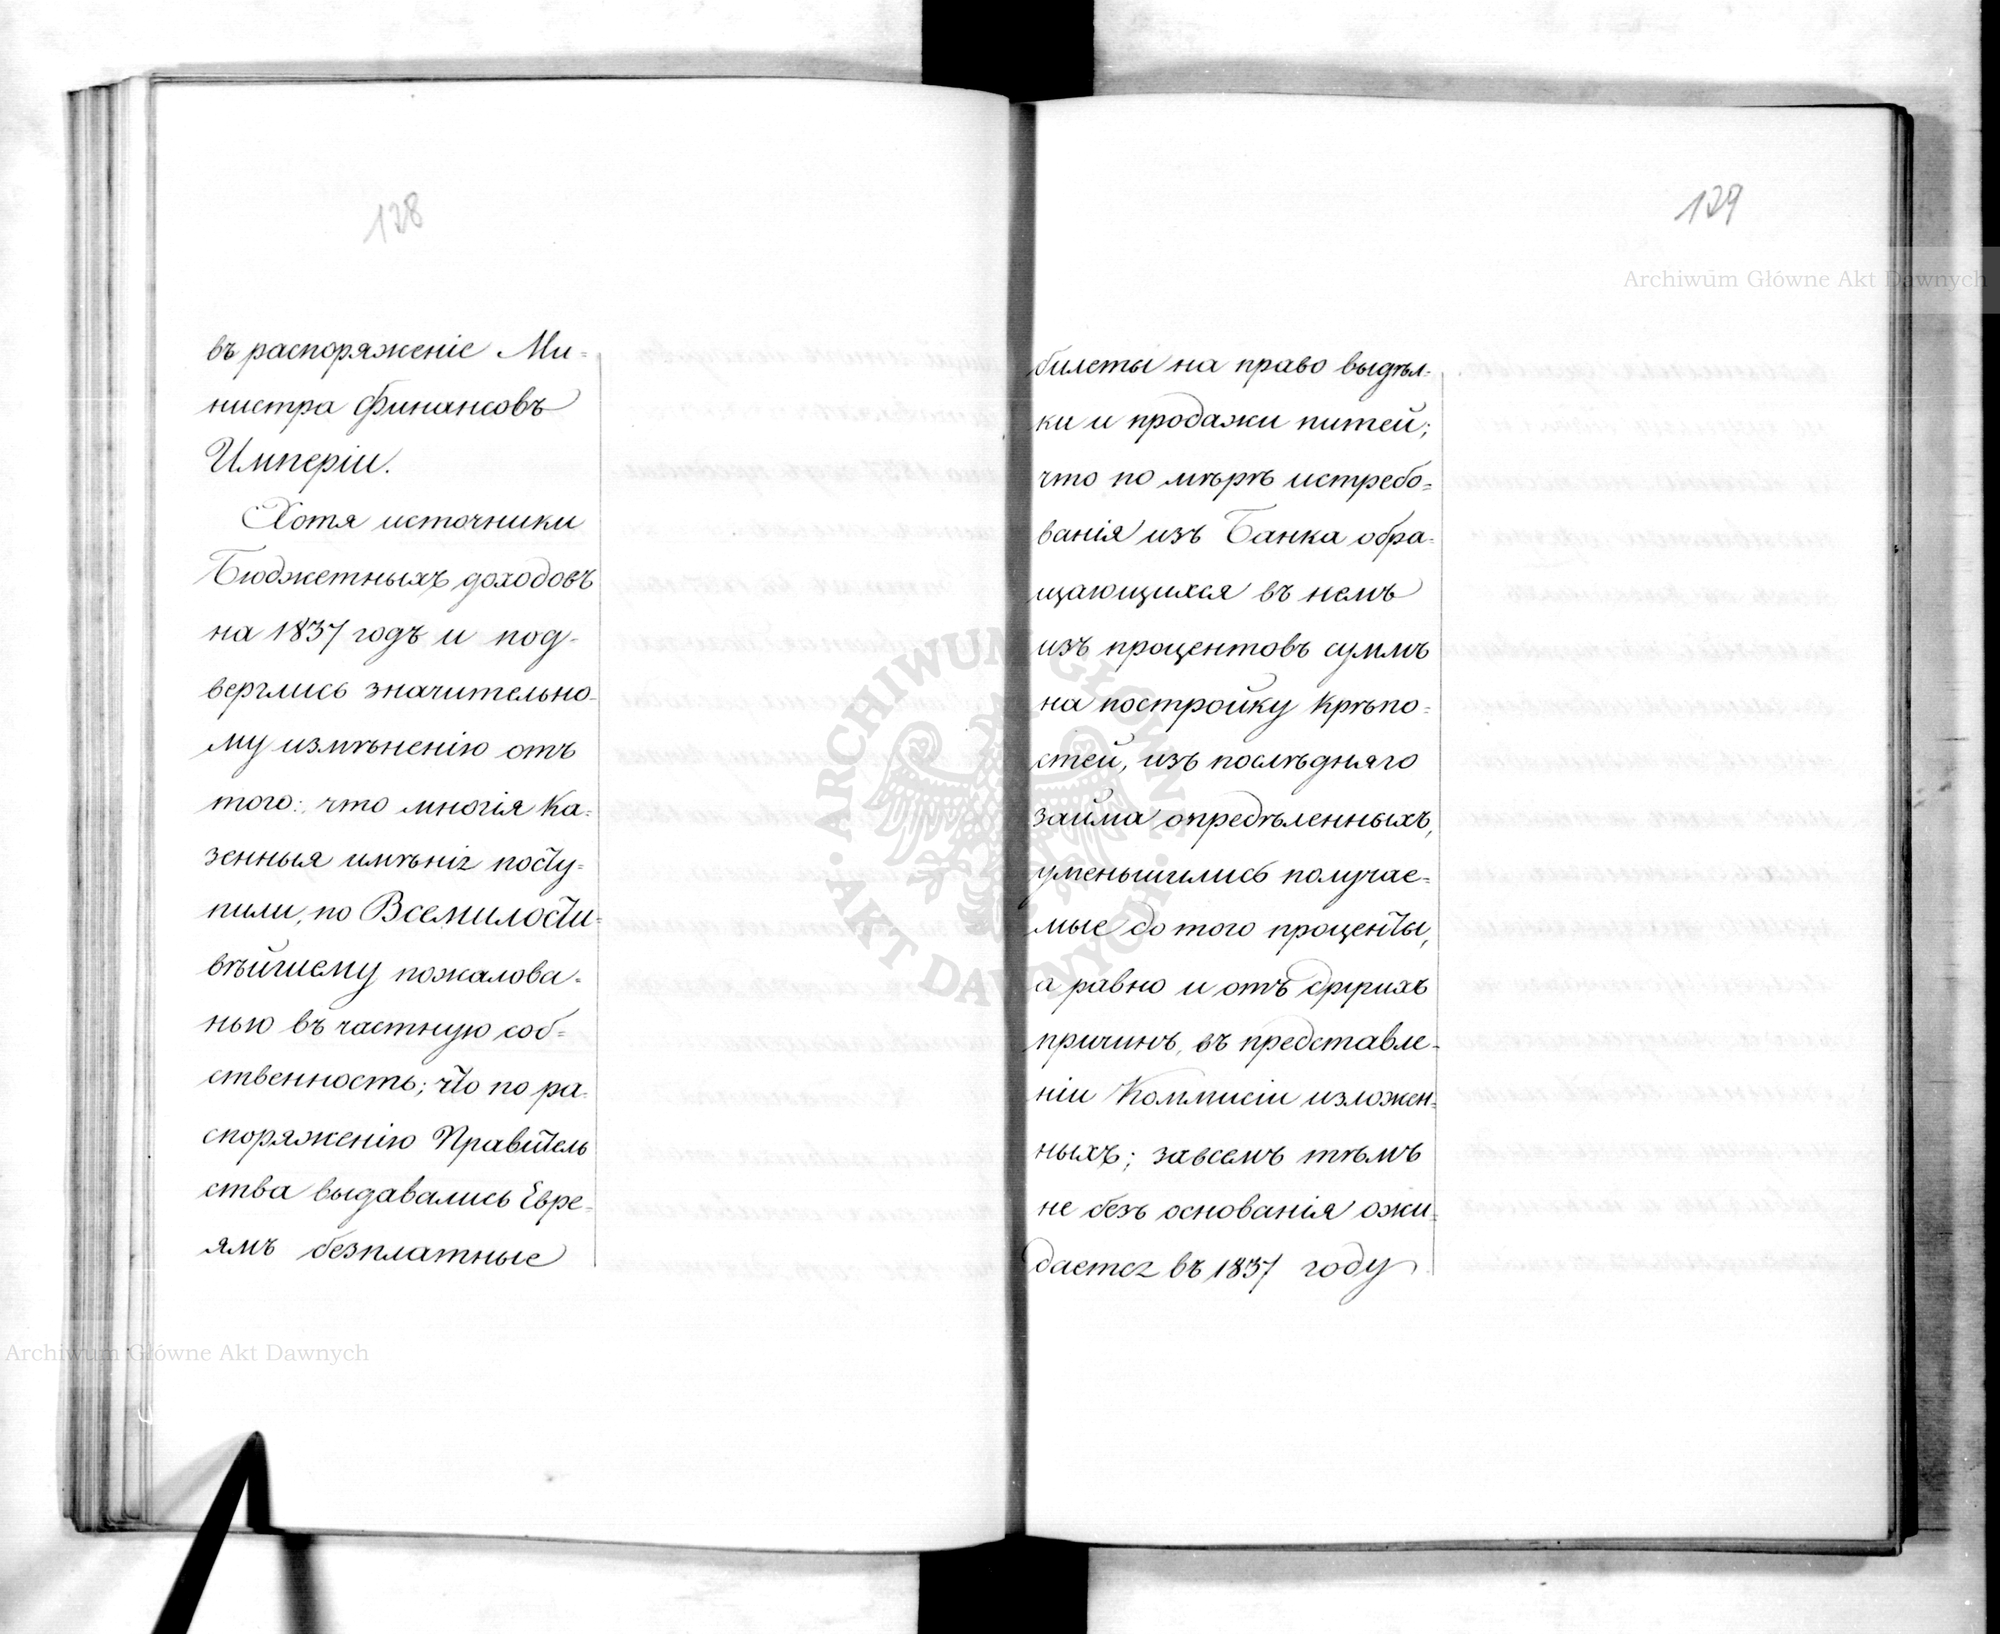 128
въ распоряженіе Ми-
нистра Финансовъ
Имперіи.
Хотя источники
Бюджетныхъ доходовъ
на 1837 годъ и под-
верглись значительно-
му измѣненію отъ
того: что многія Ка-
зенныя имѣнія посту-
пили, по Всемилости-
вѣйшему пожалова-
нью въ частную соб-
ственность; что по ра-
споряженію Правитель
ства выдавались Евре-
ямъ безплатные
129
билеты на право выдѣл-
ки и продажи питей;
что по мѣрѣ истребо-
ванія изъ Банка обра-
щающихся въ немъ
изъ процентовъ суммъ
на постройку Крѣпо-
стей, изъ послѣдняго
займа опредѣленныхъ,
уменьшились получае-
мые до того проценты,
а равно и отъ другихъ
причинъ, въ представле-
ніи Коммисіи изложен-
ныхъ; завсемъ тѣмъ
не безъ основанія ожи-
дается въ 1837 году
Archiwum Główne Akt Dawnych
Archiwum Główne Akt Dawnych
ARCHIWUM GŁÓWNE
AKT DAWNYCH